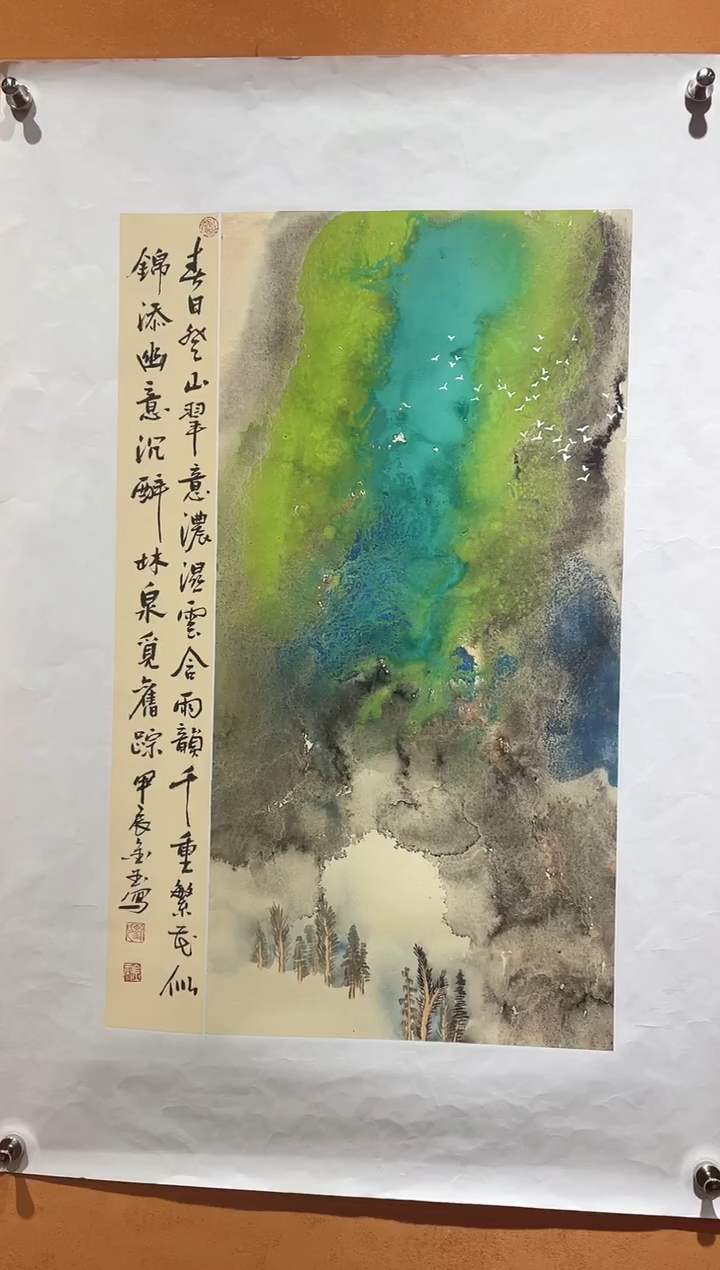 春日登山翠意濃濕雲含雨韻千重繁花似
錦添幽意沉醉林泉覓舊踪甲辰金玉寫